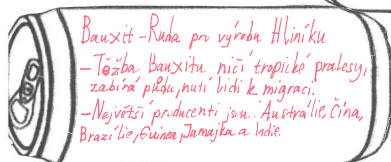 Bauxit - Ruda pro výrobu Hliníku
- Těžba Bauxitu ničí tropické pralesy,
zabírá půdu, nutí lidi k migraci.
- Největší producenti jsou Austrálie, Čína,
Brazílie, Guinea, Jamajka a Indie.